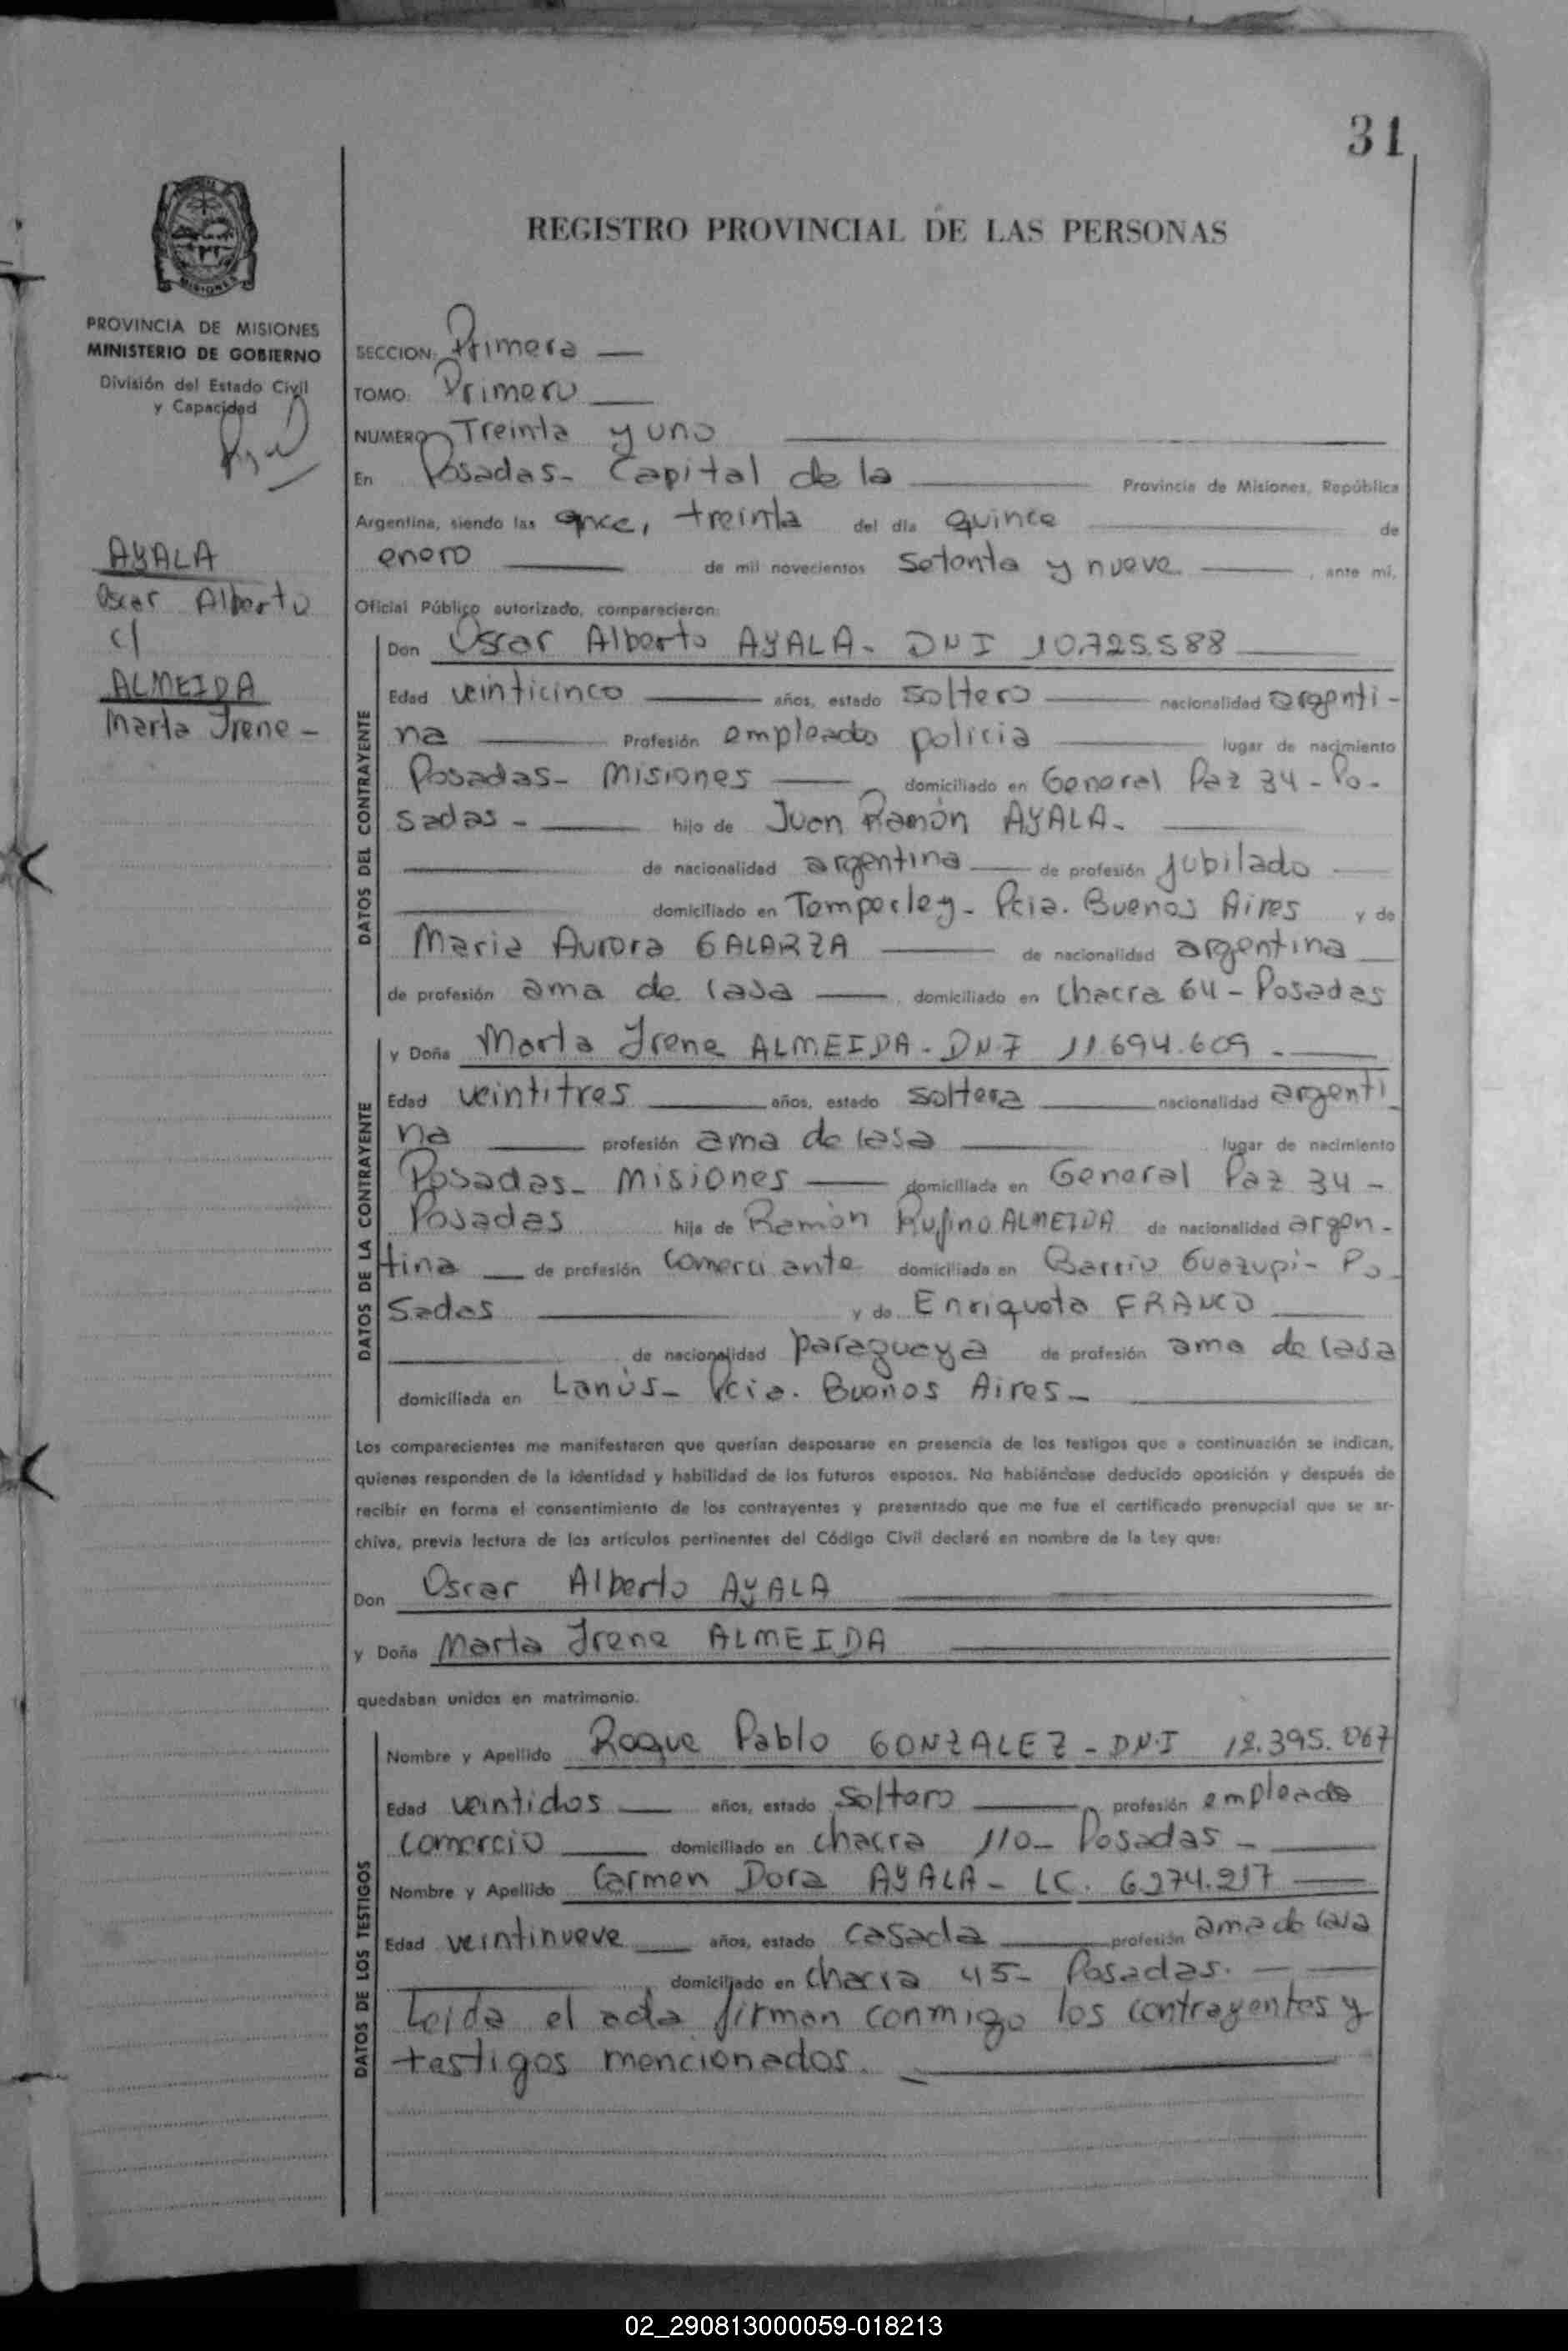 31
REGISTRO PROVINCIAL DE LAS PERSONAS
MISIONES
PROVINCIA DE MISIONES
MINISTERIO DE GOBIERNO
División del Estado Civil
y Capacidad
AYALA
Oscar Alberto
c/
ALMEIDA
Marta Irene -
SECCION: Primera
TOMO: Primero
NUMERO Treinta y uno
En Posadas- Capital de la Provincia de Misiones, República
Argentina, siendo las once, treinta del día quince de
enero de mil novecientos setenta y nueve, ante mí,
Oficial Público autorizado, comparecieron:
DATOS DEL CONTRAYENTE
Don Oscar Alberto AYALA- DNI 10.725.588
Edad veinticinco años, estado soltero nacionalidad argenti-
na Profesión empleado policia lugar de nacimiento
Posadas- Misiones, domiciliado en General Paz 34 - Po-
sadas - hijo de Juan Ramón AYALA-
de nacionalidad argentina de profesión jubilado
domiciliado en Temperley- Pcia. Buenos Aires y de
Maria Aurora GALARZA de nacionalidad argentina
de profesión ama de casa, domiciliado en chacra 64 - Posadas
DATOS DE LA CONTRAYENTE
y Doña Marta Irene ALMEIDA- DNI 11.694.609 -
Edad veintitres años, estado soltera nacionalidad argenti
na profesión ama de casa lugar de nacimiento
Posadas- Misiones domiciliada en General Paz 34 -
Posadas hija de Ramón Rufino ALMEIDA de nacionalidad argen-
tina de profesión comerciante domiciliado en Barrio Guazupi- Po-
sadas y de Enriqueta FRANCO
de nacionalidad paraguaya de profesión ama de casa
domiciliada en Lanús- Pcia. Buenos Aires-
Los comparecientes me manifestaron que querían desposarse en presencia de los testigos que a continuación se indican,
quienes responden de la identidad y habilidad de los futuros esposos. No habiéndose deducido oposición y después de
recibir en forma el consentimiento de los contrayentes y presentado que me fue el certificado prenupcial que se ar-
chiva, previa lectura de los artículos pertinentes del Código Civil declaré en nombre de la Ley que:
Don Oscar Alberto AYALA
y Doña Marta Irene ALMEIDA
quedaban unidos en matrimonio.
DATOS DE LOS TESTIGOS
Nombre y Apellido Roque Pablo GONZALEZ - DN.I 12.395.067
Edad veintidos años, estado soltero, profesión empleado
comercio domiciliado en chacra 110- Posadas -
Nombre y Apellido Carmen Dora AYALA- LC. 6.274.217
Edad veintinueve años, estado casada profesión ama de casa
domiciliado en chacra 45- Posadas.
Leida el acta firman conmigo los contrayentes y
testigos mencionados.
02_290813000059-018213